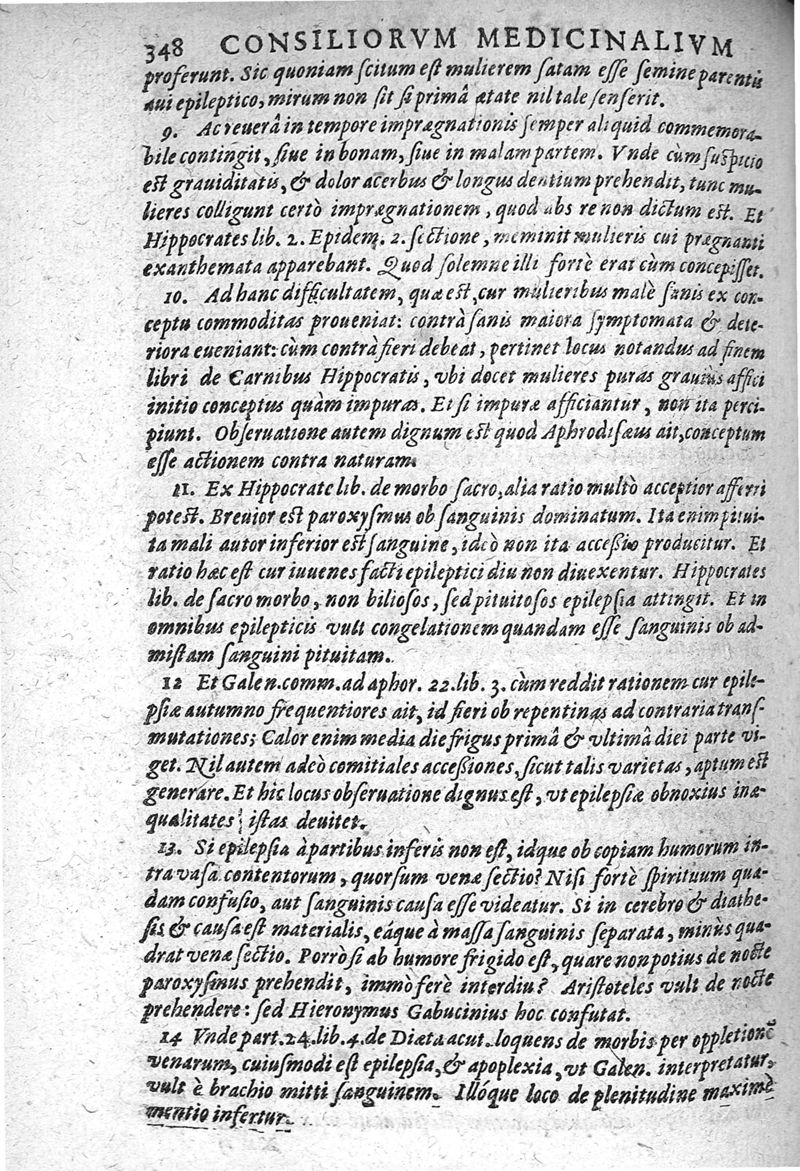 348 CONSILIORVM MEDICINALIVM
proferunt. Sic quoniam ſcitum eſt mulierem ſatam eſſe ſemine parentis
aui epileptico, mirum non ſit ſi primâ ætate nil tale ſenſerit.
9. Ac reuerâ in tempore imprægnationis ſemper aliquid commemora-
bile contingit, ſiue in bonam, ſiue in malam partem. Vnde cùm ſuſpicio
eſt grauiditatis, & dolor acerbus & longus dentium prehendit, tunc mu-
lieres colligunt certò imprægnationem, quod abs re non dictum eſt. Et
Hippocrates lib. 2. Epidem. 2. ſectione, meminit mulieris cui prægnanti
exanthemata apparebant. Quod ſolemne illi fortè erat cùm concepiſſet.
10. Ad hanc difficultatem, quæ eſt, cur mulieribus malè ſanis ex con-
ceptu commoditas proueniat: contrà ſanis maiora ſymptomata & dete-
riora eueniant: cùm contrà fieri debeat, pertinet locus notandus ad finem
libri de Carnibus Hippocratis, vbi docet mulieres puras grauiùs affici
initio conceptus quàm impuras. Et ſi impuræ afficiantur, non ita perci-
piunt. Obſeruatione autem dignum eſt quod Aphrodiſæus ait, conceptum
eſſe actionem contra naturam.
11. Ex Hippocrate lib. de morbo ſacro, alia ratio multò acceptior afferri
poteſt. Breuior eſt paroxyſmus ob ſanguinis dominatum. Ita enim pitui-
ta mali autor inferior eſt ſanguine, ideò non ita acceßio producitur. Et
ratio hæc eſt cur iuuenes facti epileptici diu non diuexentur. Hippocrates
lib. de ſacro morbo, non bilioſos, ſed pituitoſos epilepſia attingit. Et in
omnibus epilepticis vult congelationem quandam eſſe ſanguinis ob ad-
miſtam ſanguini pituitam.
12 Et Galen. comm. ad aphor. 22. lib. 3. cùm reddit rationem cur epile-
pſiæ autumno frequentiores ait, id fieri ob repentinas ad contraria tranſ-
mutationes; Calor enim media die frigus primâ & vltimâ diei parte vi-
get. Nil autem adeò comitiales acceßiones, ſicut talis varietas, aptum eſt
generare. Et hic locus obſeruatione dignus eſt, vt epilepſiæ obnoxius inæ-
qualitates iſtas deuitet.
13. Si epilepſia à partibus inferis non eſt, idque ob copiam humorum in-
tra vaſa contentorum, quorſum venæ ſectio? Niſi fortè ſpirituum quæ-
dam confuſio, aut ſanguinis cauſa eſſe videatur. Si in cerebro & diathe-
ſis & cauſa eſt materialis, eáque à maſſa ſanguinis ſeparata, minùs qua-
drat venæ ſectio. Porrò ſi ab humore frigido eſt, quare non potius de nocte
paroxyſmus prehendit, immò ferè interdiu? Ariſtoteles vult de nocte
prehendere: ſed Hieronymus Gabucinius hoc confutat.
14 Vnde part. 24. lib. 4. de Diæta acut. loquens de morbis per oppletionē
venarum, cuiuſmodi eſt epilepſia, & apoplexia, vt Galen. interpretatur,
vult è brachio mitti ſanguinem. Illóque loco de plenitudine maximè
mentio infertur.